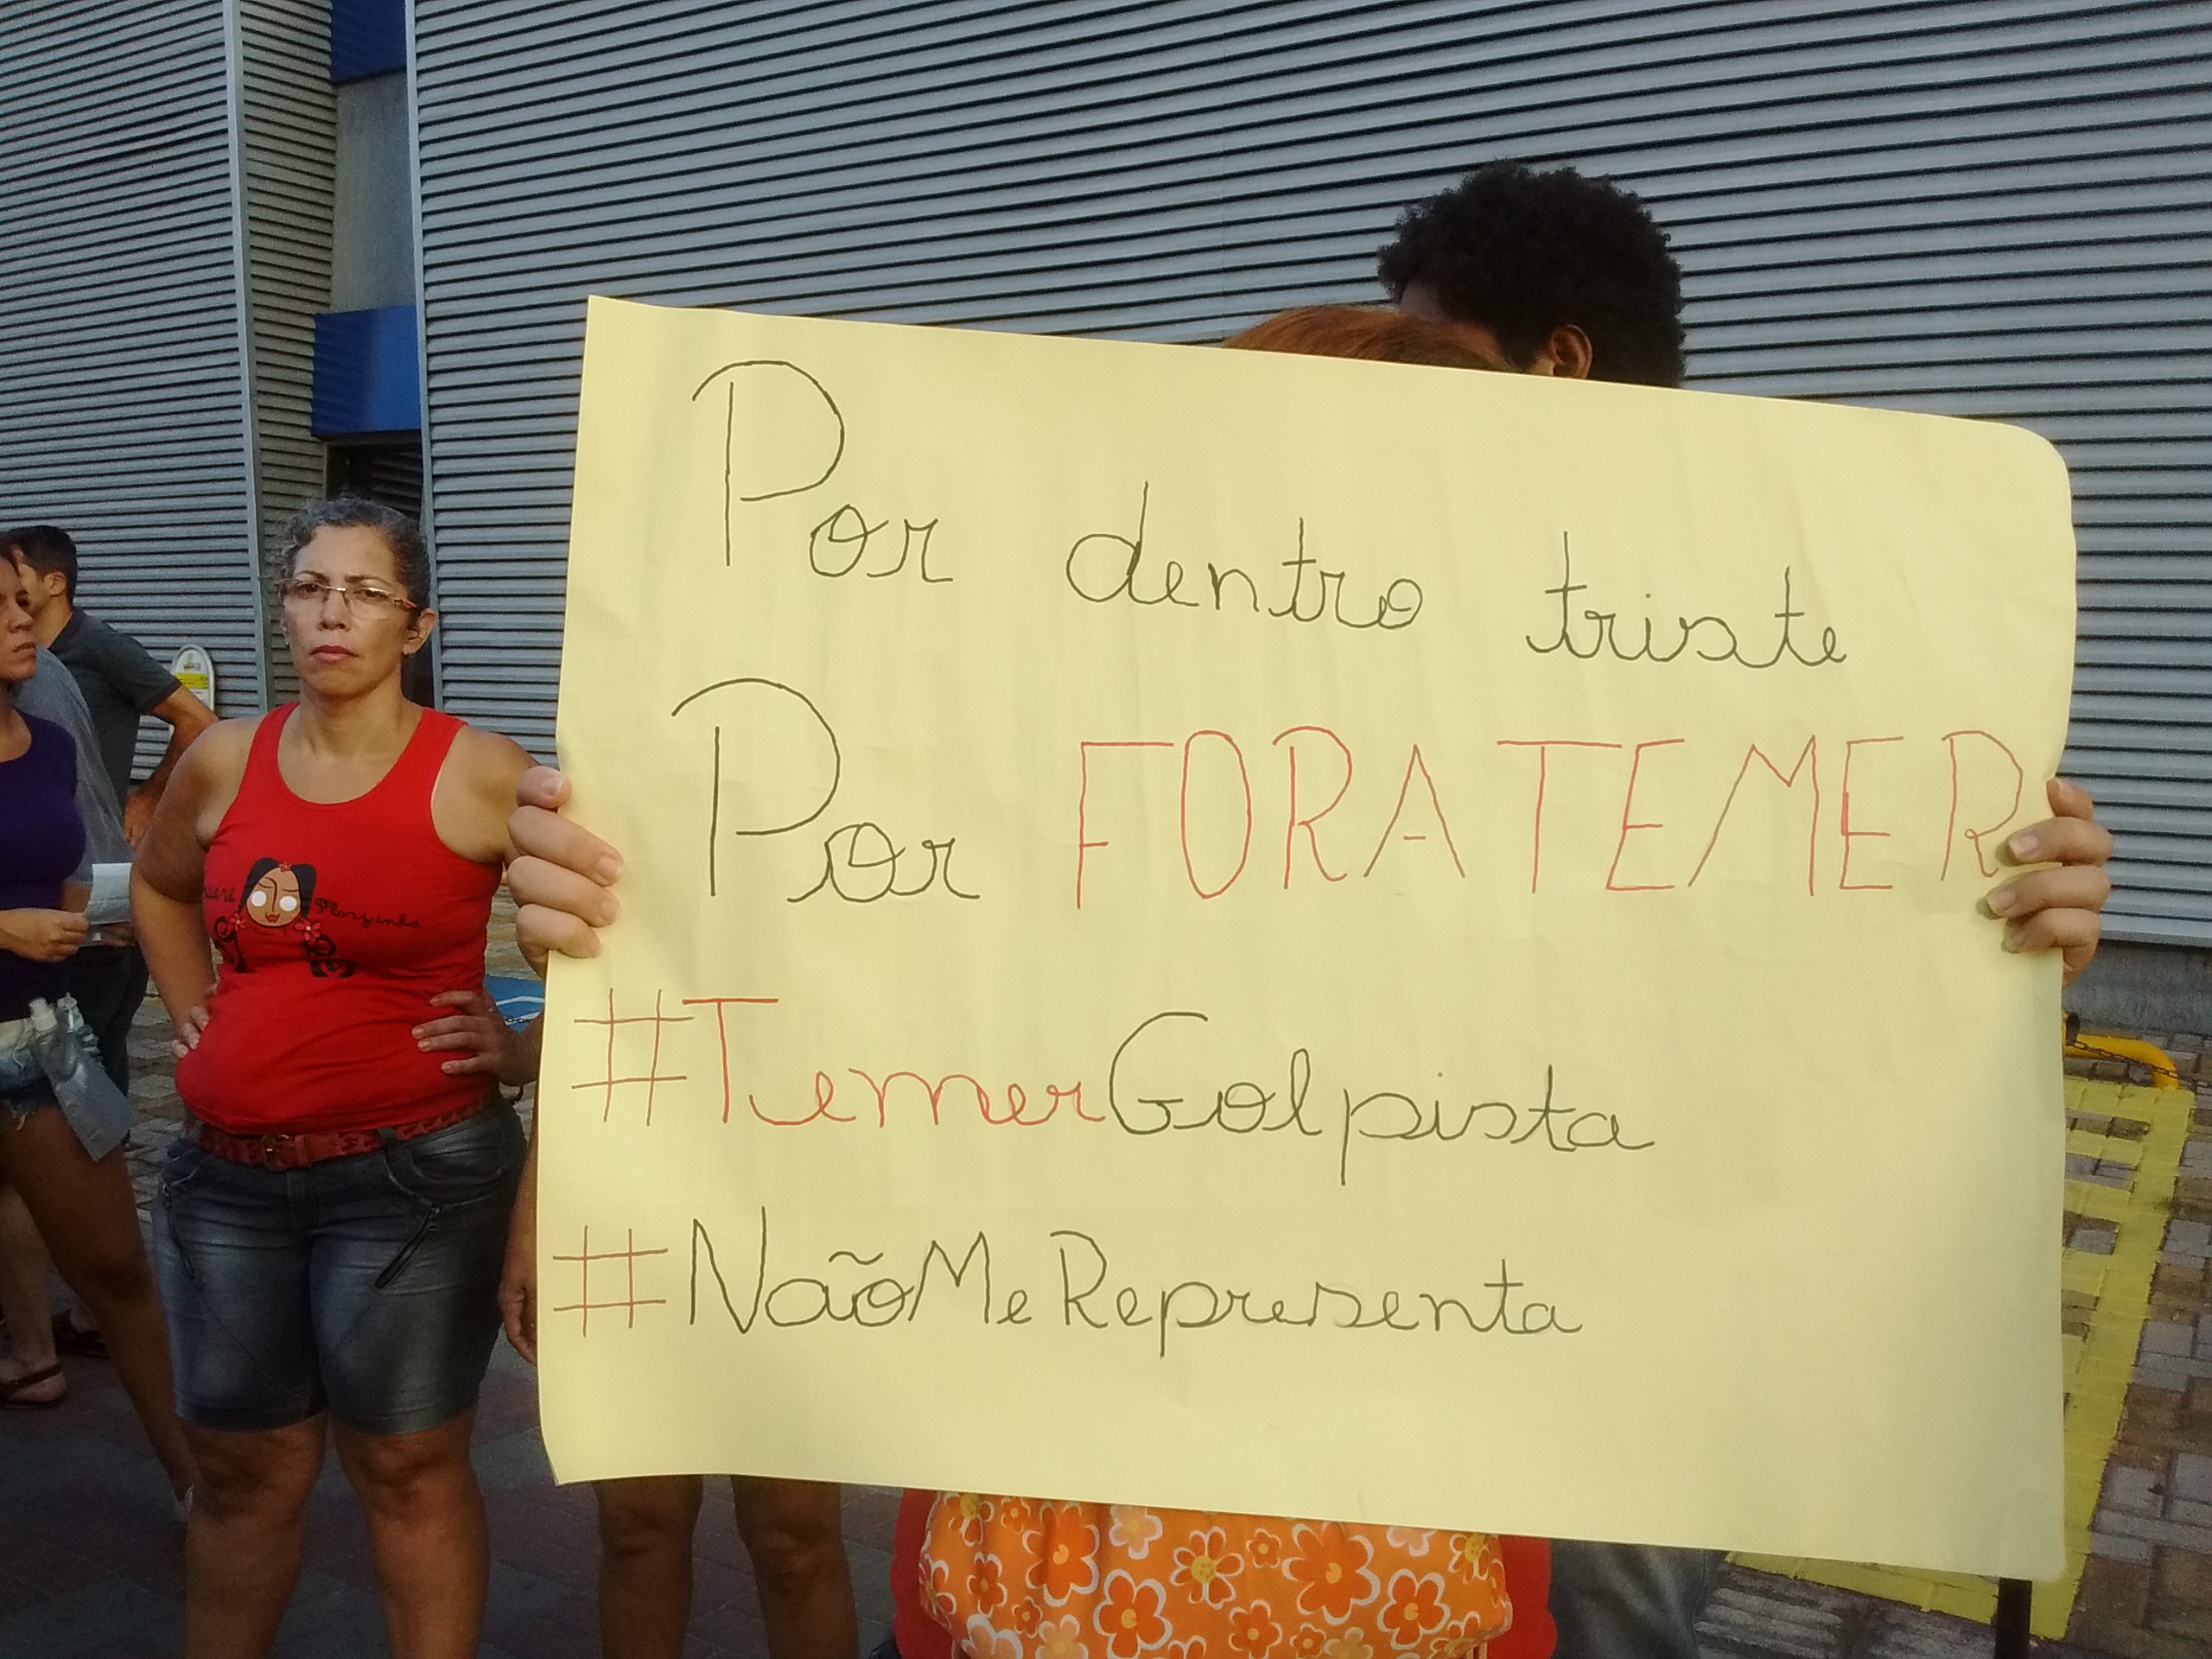 Por dentro triste
Por FORATEMER
#TemerGolpista
#NãoMeRepresenta
Florzinha